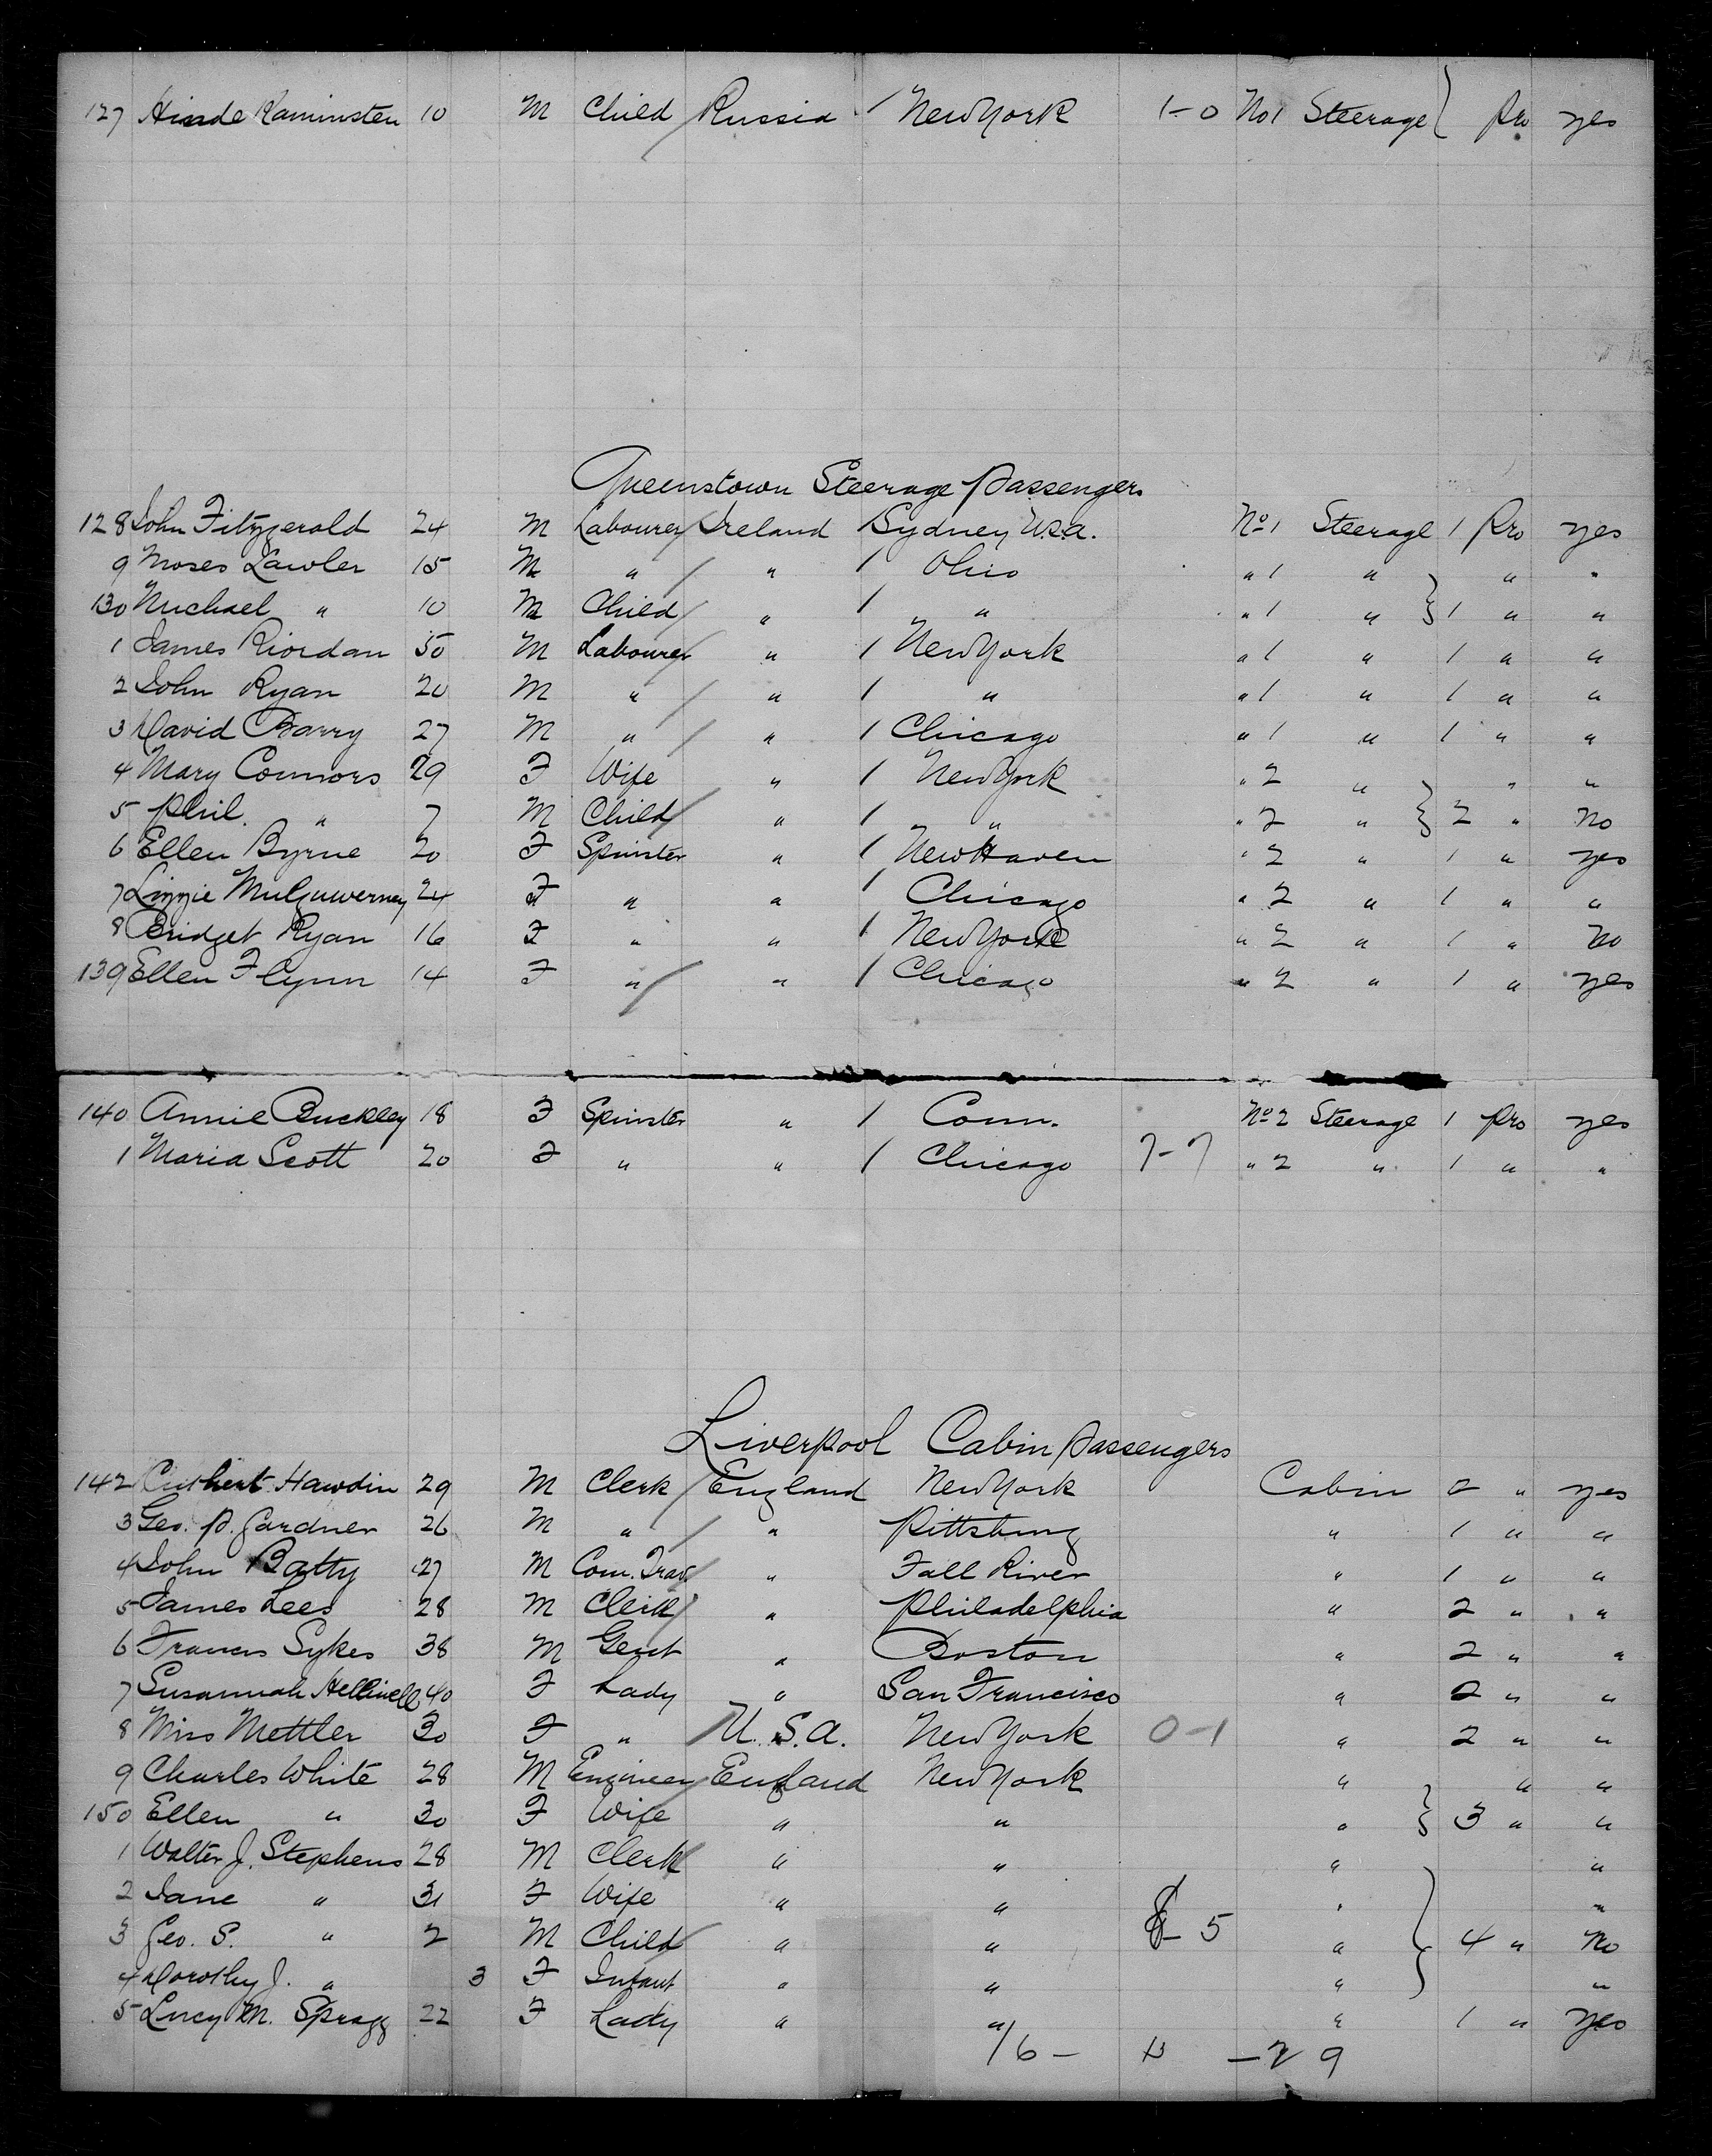 127 Hinde Kaminsten 10 M Child Russia / New York 1-0 No 1 Steerage } Pro yes
Queenstown Steerage Passengers
128 John Fitzgerald 24 M Labourer Ireland / Sydney U.S.A. No 1 Steerage 1 Pro yes
9 Moses Lawler 15 M " " / Ohio " 1 " " "
130 Michael " 10 M Child " / " " 1 " } 1 " "
1 James Riordan 50 M Labourer " / New York " 1 " 1 " "
2 John Ryan 20 M " " / " " 1 " 1 " "
3 David Barry 27 M " " / Chicago " 1 " 1 " "
4 Mary Connors 29 F Wife " / New York " 2 " " "
5 Phil. " 7 M Child " / " " 2 " } 2 " No
6 Ellen Byrne 20 F Spinster " / New Haven " 2 " 1 " yes
7 Lizzie 24 F " " / Chicago " 2 " 1 " "
8 Bridget Ryan 16 F " " / New York " 2 " 1 " No
139 Ellen Flynn 14 F " " / Chicago " 2 " 1 " yes
140 Annie Buckley 18 F Spinster " / Conn. No 2 Steerage 1 Pro yes
1 Maria Scott 20 F " " / Chicago 7-7 " 2 " 1 " "
Liverpool Cabin Passengers
142 Cuthbert Hawdin 29 M Clerk England New York Cabin 2 " yes
3 Geo. P. Gardner 26 M " " Pittsburg " 1 " "
4 John Batty 27 M Com. Trav. " Fall River " 1 " "
5 James Lees 28 M Clerk " Philadelphia " 2 " "
6 Francis Sykes 38 M Gent " Boston " 2 " "
7 Susannah Hellivell 40 F Lady " San Francisco " 2 " "
8 Miss Mettler 30 F " U.S.A. New York 0-1 " 2 " "
9 Charles White 28 M Engineer England New York " " "
150 Ellen " 30 F Wife " " " } 3 " "
1 Walter J. Stephens 28 M Clerk " " " "
2 Jane " 31 F Wife " " " "
3 Geo. S. " 2 M Child " " - 5 " } 4 " No
4 Dorothy J. " 3 F Infant " " " "
5 Lucy M. Spragg 22 F Lady " " " 1 " yes
16 - - 29